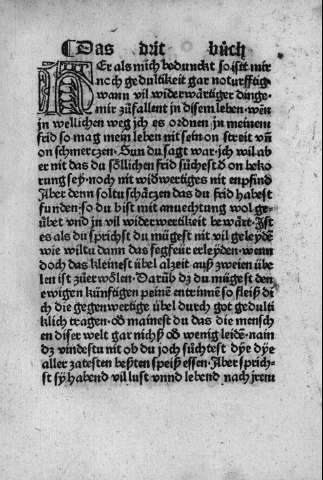 Das drit bůch
HEr als mich bedunckt so istt mir
noch gedultikeit gar noturfftig
wann vil widerwärtiger dinge
mir zůfallent in disem leben. wen̄
in wellichen weg ich es ordnen in meinem
frid so mag mein leben nit sein on streit vn̄
on schmertzen. Sun du sagt war. ich wil ab
er nit das du söllichen frid sůchest d̄ on beko
rung sey. noch nit widwertiges nit enpfind
Aber denn soltu schäczen das du frid habest
funden. so du bist mit anuechtung wol ge⸗
übet vnd in vil widerwertikeit bewärt. Ist
es als du sprichst du mügest nit vil geleydē
wie wiltu dann das fegfeür erleyden. wenn
doch das kleinest übel alzeit auß zweien übe
len ist zůerwölen. Darüb dz du mügest den
ewigen künftigen peinē entrinnē so fleiß di
ch die gegenwertige übel durch got gedulti
klich tragen. ob mainest du das die mensch
en diser welt gar nichß ob wenig leidē. nain
dz vindestu nit ob du joch sůchtest dye dye
aller zatesten besten speiß essen. Aber sprich⸗
st sy habend vil lust vnnd lebend nach jrem